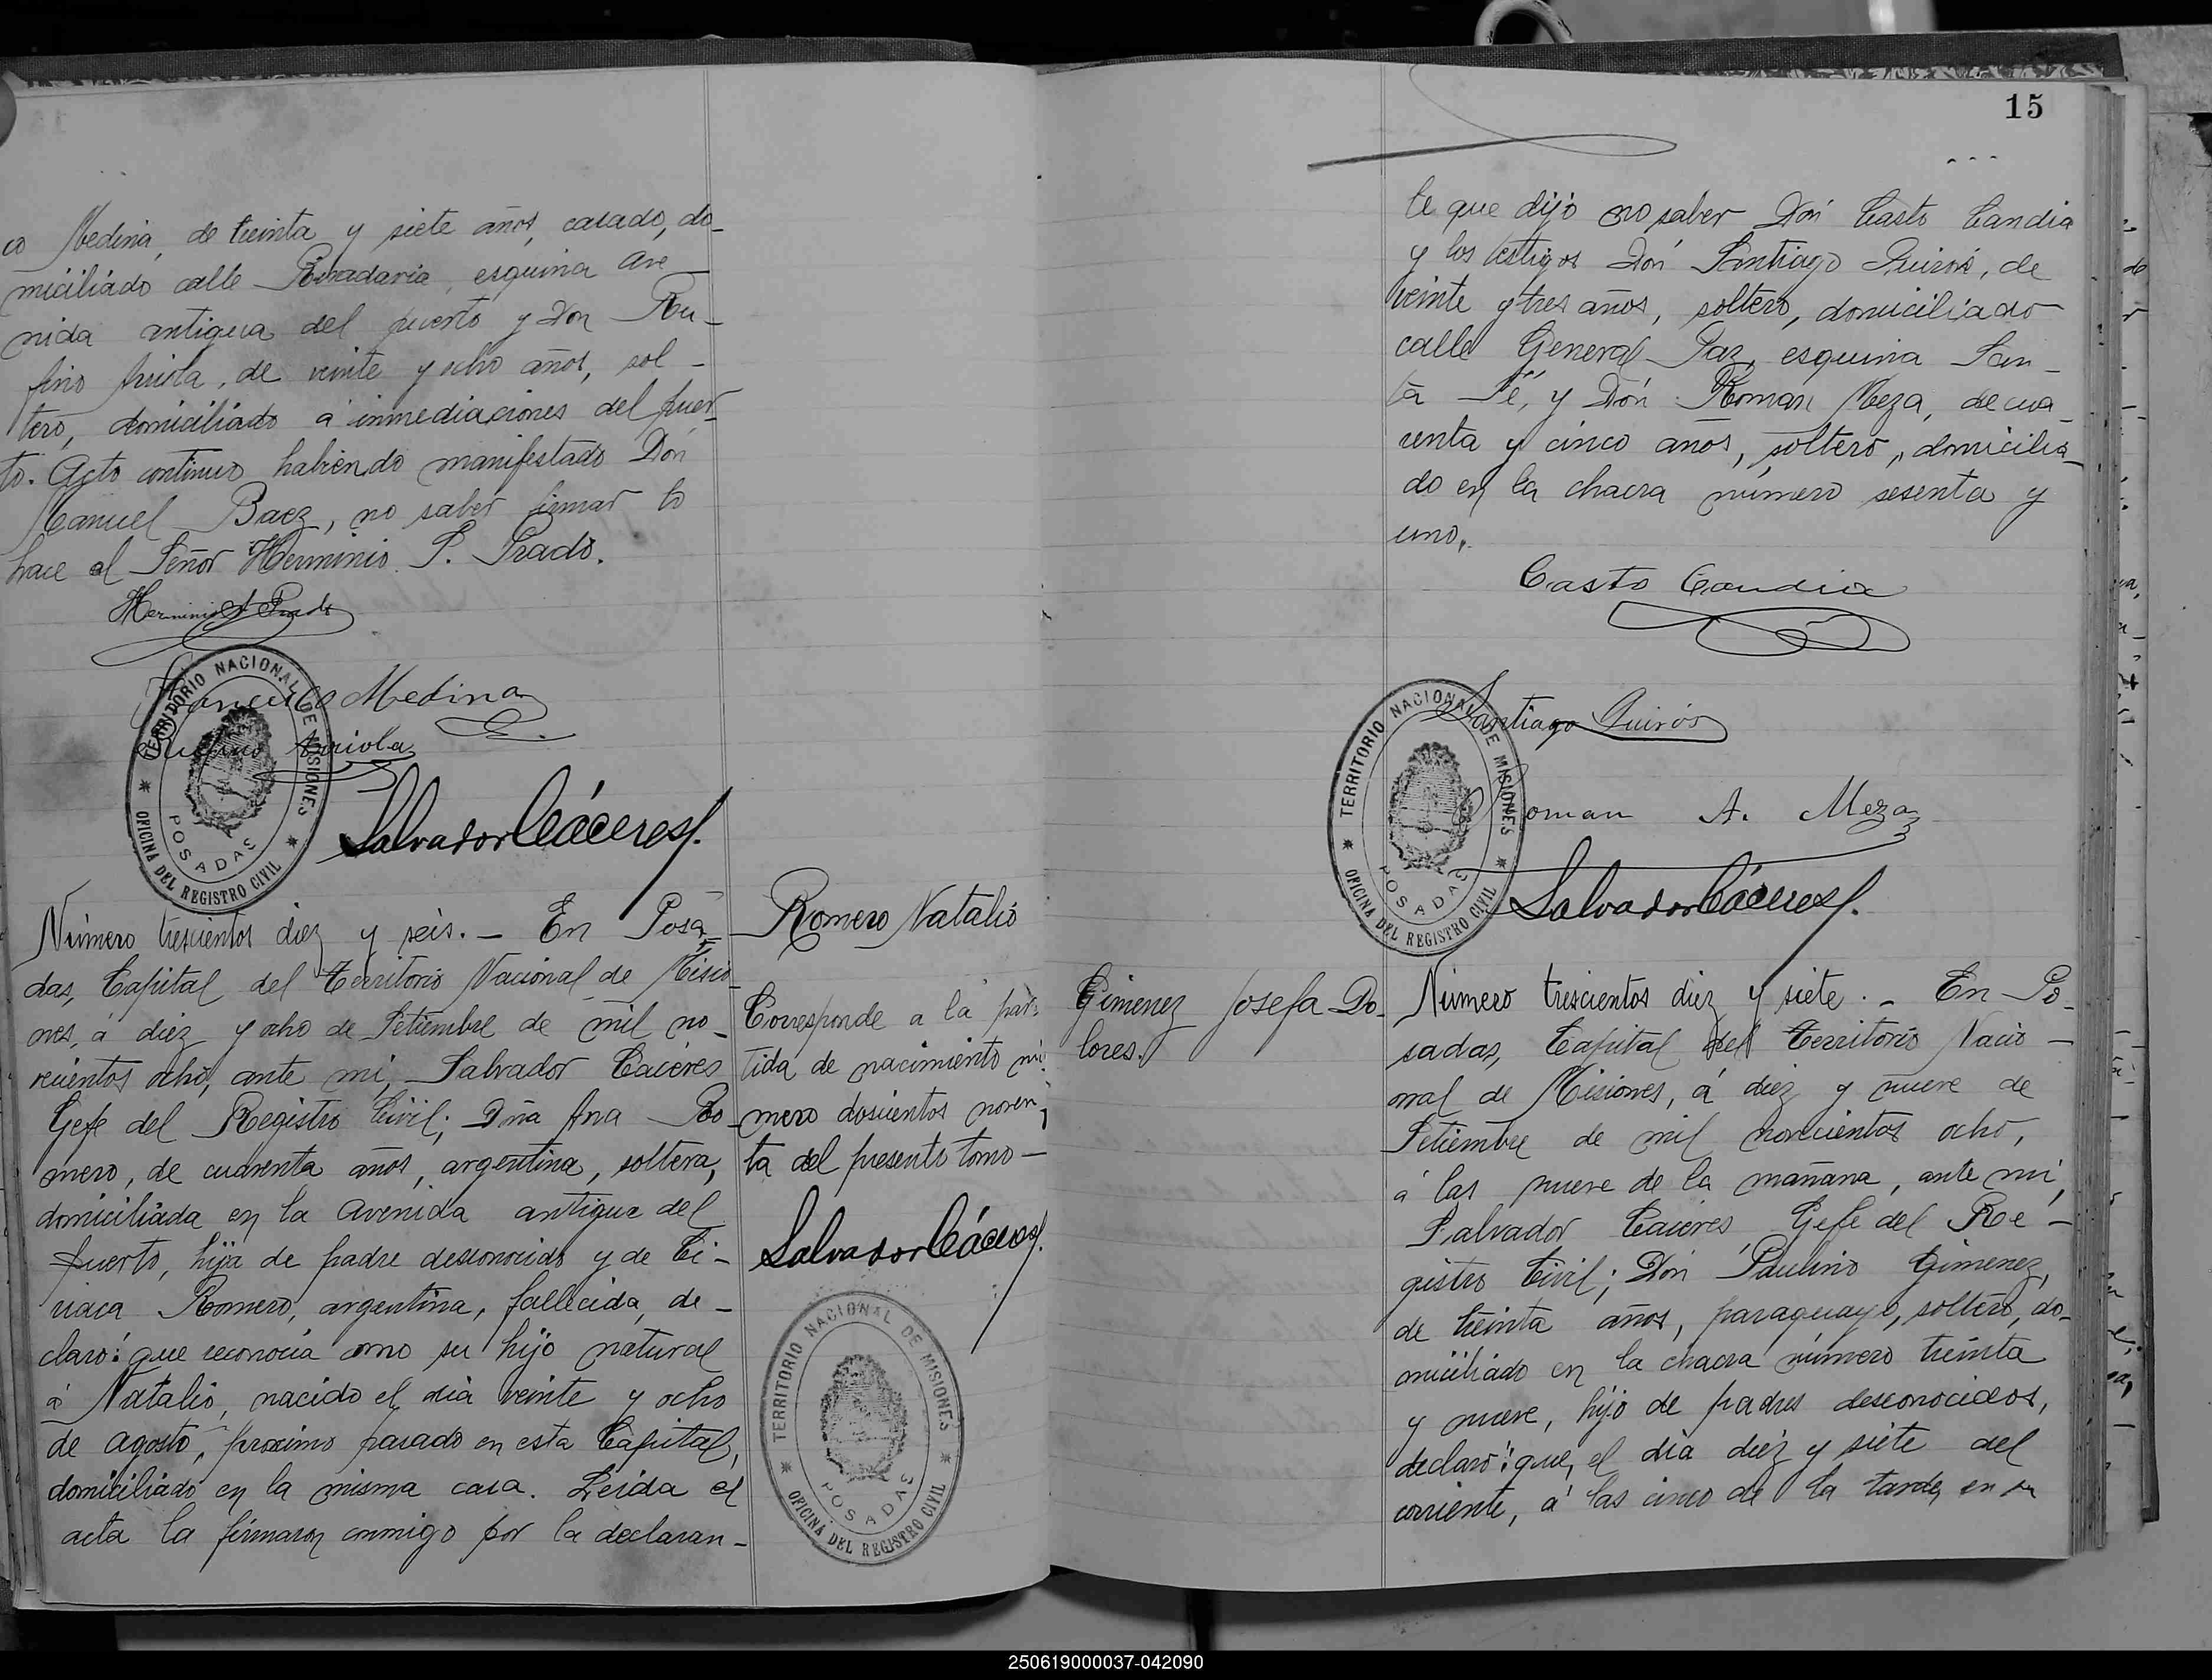 co Medina, de treinta y siete años, casado, do_
miciliado calle Rivadavia, esquina ave_
nida antigua del puerto y Don Ru_
fino Arriola, de veinte y ocho años, sol_
tero, domiciliado á inmediaciones del puer_
to. Acto continuo habiendo manifestado Don
Manuel Baez, no saber firmar lo
hace el Señor Herminio P. Prado.
Herminio P. Prado
Francisco Medina
Rufino Arriola
Salvador Cáceres
TERRITORIO NACIONAL DE MISIONES
POSADAS
OFICINA DEL REGISTRO CIVIL
Número trescientos diez y seis. _ En Posa_
das, Capital del Territorio Nacional de Misio_
nes, á diez y ocho de Setiembre de mil no_
vecientos ocho, ante mi, Salvador Caceres
Gefe del Registro Civil; Dña Ana Ro_
mero, de cuarenta años, argentina, soltera,
domiciliada en la Avenida antigua del
puerto, hija de padre desconocido y de Ci_
riaca Romero, argentina, fallecida, de_
claró: que reconocia como su hijo natural
á Natalio, nacido el dia veinte y ocho
de agosto, proximo pasado en esta Capital,
domiciliado en la misma casa. Leida el
acta la firmaron conmigo por la declaran_
Romero Natalio
Corresponde a la par_
tida de nacimiento nú_
mero doscientos noven_
ta del presente tomo _
Salvador Cáceres
TERRITORIO NACIONAL DE MISIONES
POSADAS
OFICINA DEL REGISTRO CIVIL
15
te que dijó no saber Dón Casto Candia
y los testigos Dón Santiago Quirós, de
veinte y tres años, soltero, domiciliado
calle General Paz, esquina San_
ta Fé, y Dón Roman Meza, de cua_
renta y cinco años, soltero, domicilia_
do en la chacra número sesenta y
uno.
Casto Candia
Santiago Quirós
Roman A. Meza
Salvador Cáceres
TERRITORIO NACIONAL DE MISIONES
POSADAS
OFICINA DEL REGISTRO CIVIL
Gimenez Josefa Do_
lores.
Número trescientos diez y siete. _ En Po_
sadas, Capital del Territorio Nacio_
nal de Misiones, á diez y nueve de
Setiembre de mil novecientos ocho,
á las nueve de la mañana, ante mi,
Salvador Caceres, Gefe del Re_
gistro Civil; Dón Paulino Gimenez,
de treinta años, paraguayo, soltero, do_
miciliado en la chacra número treinta
y nueve, hijo de padres desconocidos,
declaró: que, el dia diez y siete del
corriente, á las cinco de la tarde, en su
250619000037-042090